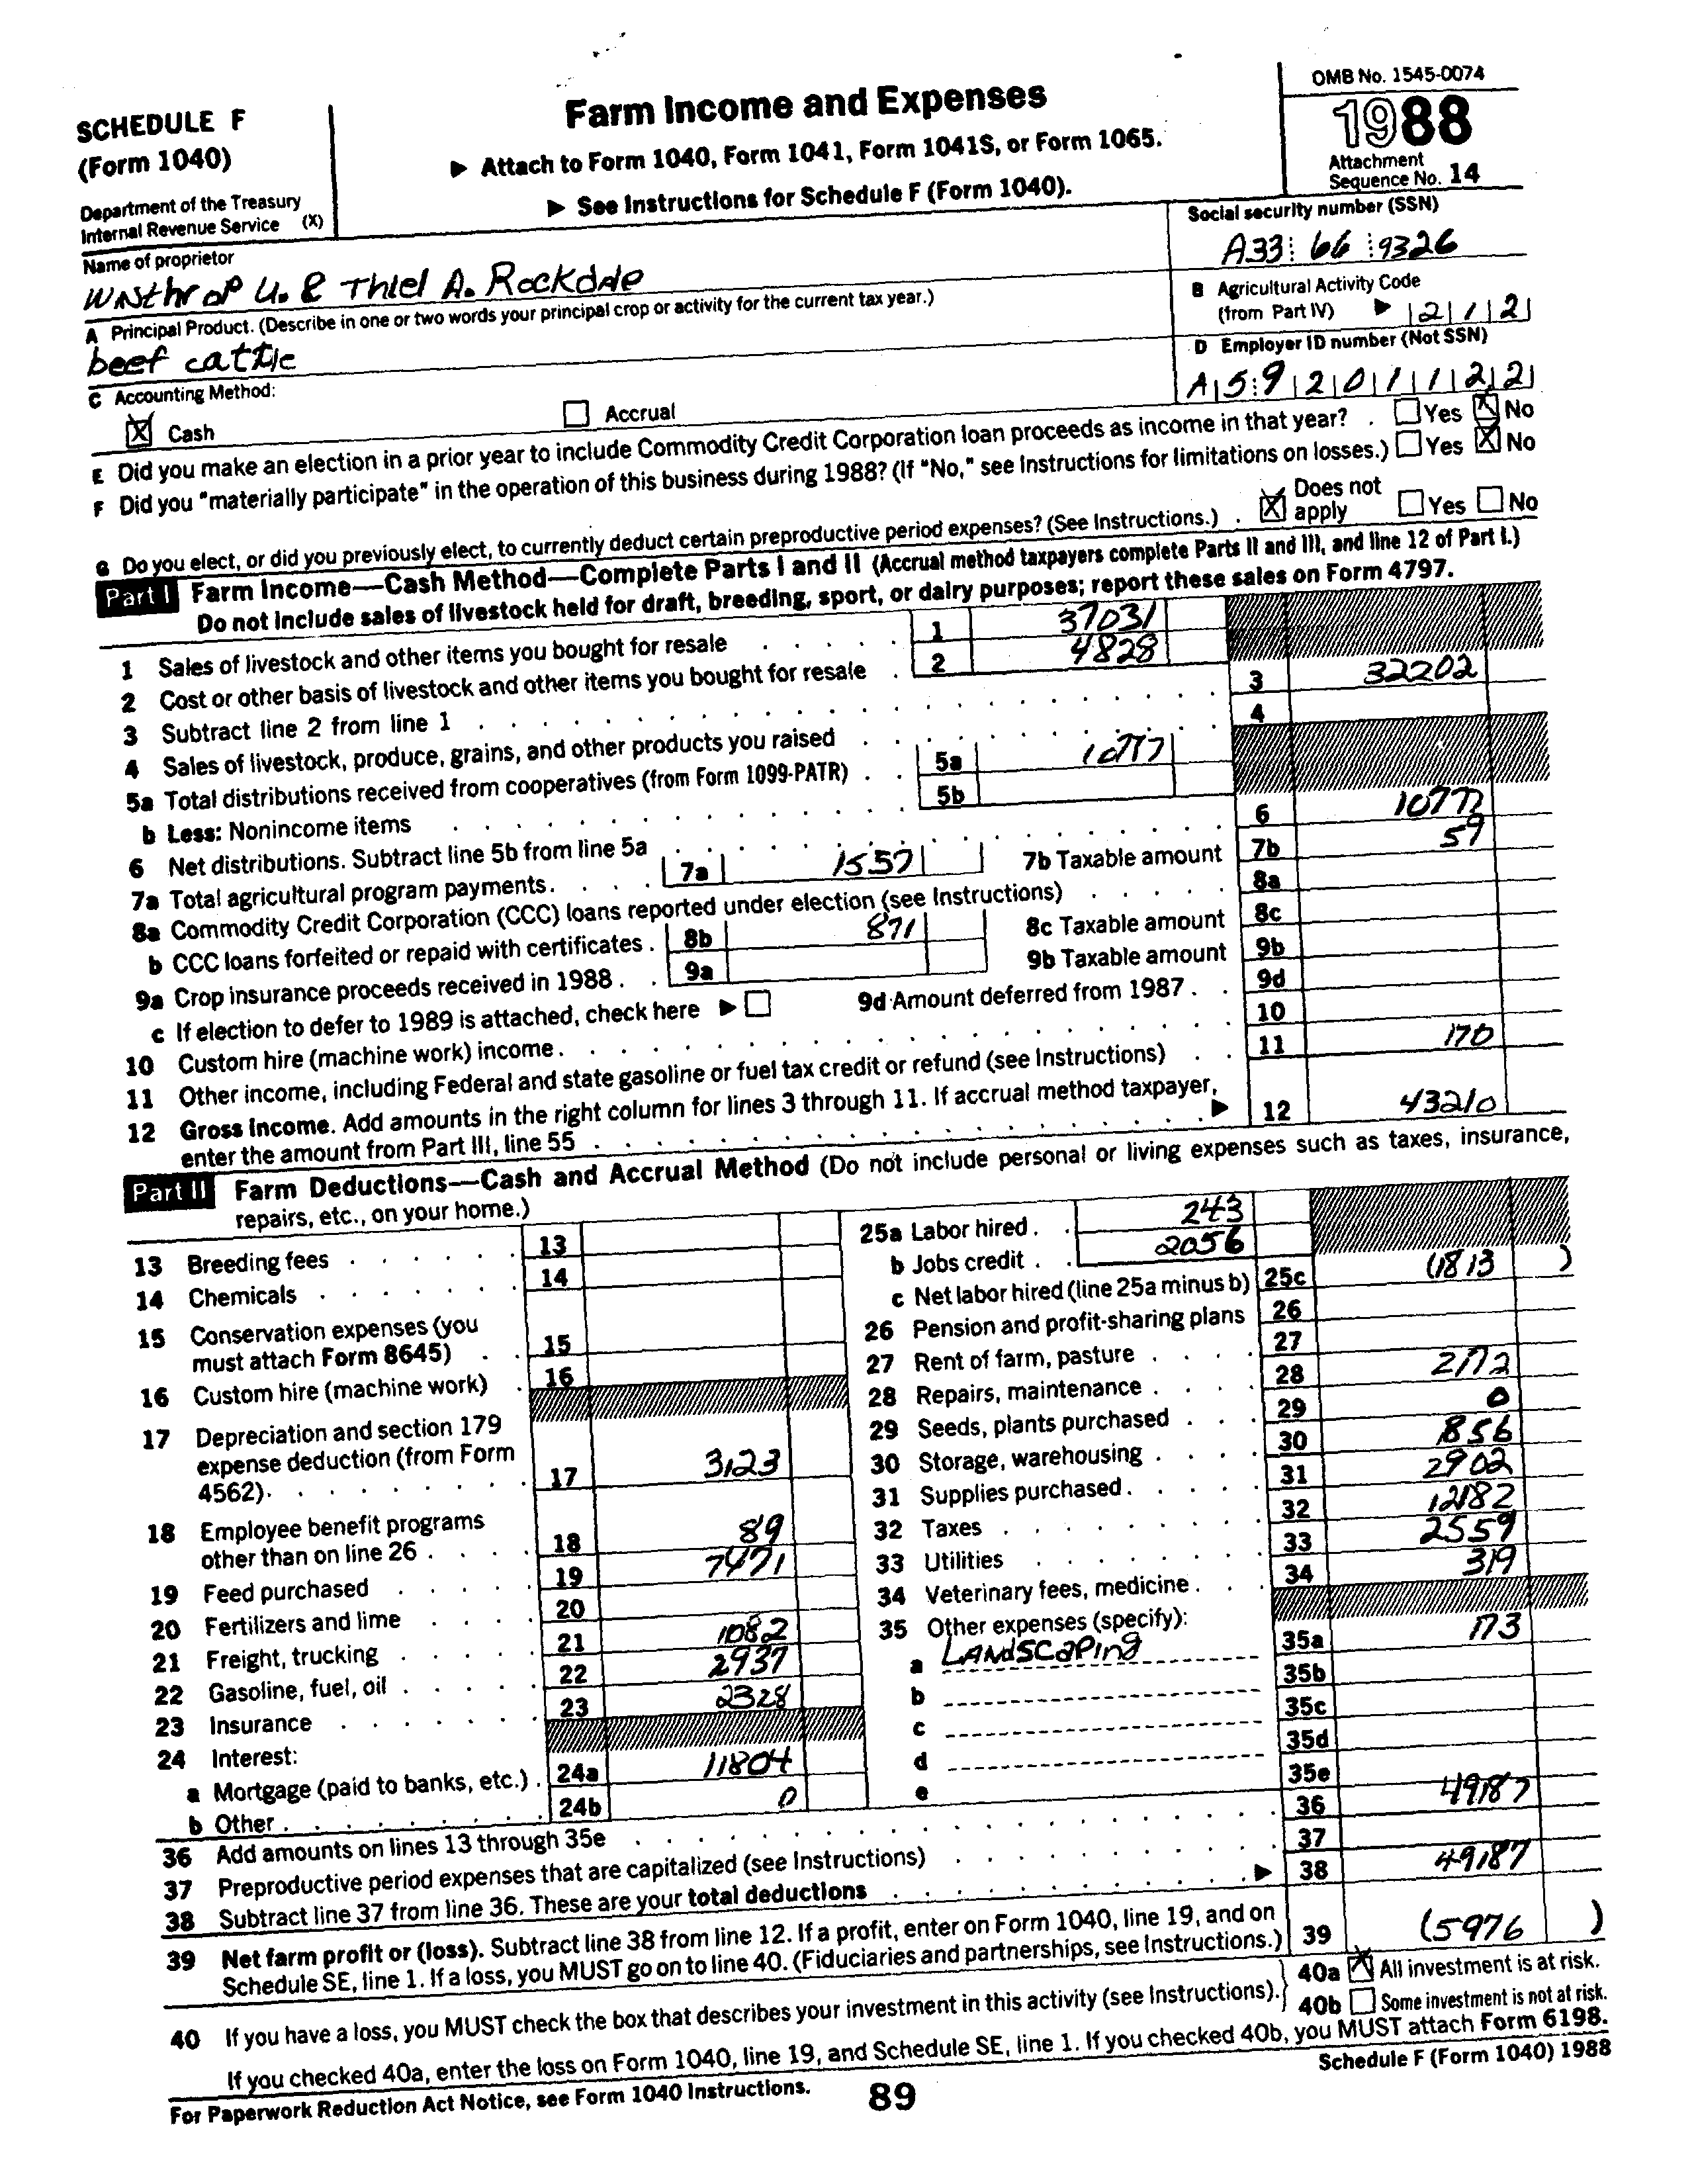 SCHEDULE F
(Form 1040)
Department of the Treasury
Internal Revenue Service (X)
Farm Income and Expenses
▶ Attach to Form 1040, Form 1041, Form 1041S, or Form 1065.
▶ See Instructions for Schedule F (Form 1040).
OMB No. 1545-0074
1988
Attachment
Sequence No. 14
Name of proprietor
Winthrop U. & Thiel A. Rockdale
Social security number (SSN)
A33 66 9326
A Principal Product. (Describe in one or two words your principal crop or activity for the current tax year.)
beef cattle
B Agricultural Activity Code
(from Part IV) ▶ 2 1 2
C Accounting Method:
X Cash
Accrual
D Employer ID number (Not SSN)
A 5 9 2 0 1 1 2 2
E Did you make an election in a prior year to include Commodity Credit Corporation loan proceeds as income in that year? . Yes X No
F Did you "materially participate" in the operation of this business during 1988? (If "No," see Instructions for limitations on losses.) Yes X No
G Do you elect, or did you previously elect, to currently deduct certain preproductive period expenses? (See Instructions.) . X Does not apply Yes No
Part I Farm Income—Cash Method—Complete Parts I and II (Accrual method taxpayers complete Parts II and III, and line 12 of Part I.)
Do not include sales of livestock held for draft, breeding, sport, or dairy purposes; report these sales on Form 4797.
1 Sales of livestock and other items you bought for resale 1 37031
2 Cost or other basis of livestock and other items you bought for resale 2 4828
3 Subtract line 2 from line 1 3 32202
4 Sales of livestock, produce, grains, and other products you raised 4
5a Total distributions received from cooperatives (from Form 1099-PATR) 5a 10777
b Less: Nonincome items 5b
6 Net distributions. Subtract line 5b from line 5a 6 10777
7a Total agricultural program payments. 7a 1557 7b Taxable amount 7b 59
8a Commodity Credit Corporation (CCC) loans reported under election (see Instructions) 8a
b CCC loans forfeited or repaid with certificates . 8b 871 8c Taxable amount 8c
9a Crop insurance proceeds received in 1988 . 9a 9b Taxable amount 9b
c If election to defer to 1989 is attached, check here ▶ 9d Amount deferred from 1987 . 9d
10 Custom hire (machine work) income . 10
11 Other income, including Federal and state gasoline or fuel tax credit or refund (see Instructions) 11 170
12 Gross Income. Add amounts in the right column for lines 3 through 11. If accrual method taxpayer,
enter the amount from Part III, line 55 ▶ 12 43210
Part II Farm Deductions—Cash and Accrual Method (Do not include personal or living expenses such as taxes, insurance,
repairs, etc., on your home.)
13 Breeding fees 13
14 Chemicals 14
15 Conservation expenses (you
must attach Form 8645) 15
16 Custom hire (machine work) 16
17 Depreciation and section 179
expense deduction (from Form
4562). 17 3123
18 Employee benefit programs
other than on line 26 18 89
19 Feed purchased 19 7471
20 Fertilizers and lime 20
21 Freight, trucking 21 1082
22 Gasoline, fuel, oil 22 2937
23 Insurance 23 2328
24 Interest:
a Mortgage (paid to banks, etc.) . 24a 11804
b Other 24b 0
25a Labor hired . 243
b Jobs credit . 2056
c Net labor hired (line 25a minus b) 25c (1813 )
26 Pension and profit-sharing plans 26
27 Rent of farm, pasture 27
28 Repairs, maintenance 28 2172
29 Seeds, plants purchased 29 0
30 Storage, warehousing 30 856
31 Supplies purchased. 31 2902
32 Taxes 32 12182
33 Utilities 33 2559
34 Veterinary fees, medicine . 34 319
35 Other expenses (specify):
a Landscaping 35a 173
b 35b
c 35c
d 35d
e 35e
36 Add amounts on lines 13 through 35e 36 49187
37 Preproductive period expenses that are capitalized (see Instructions) 37
38 Subtract line 37 from line 36. These are your total deductions ▶ 38 49187
39 Net farm profit or (loss). Subtract line 38 from line 12. If a profit, enter on Form 1040, line 19, and on
Schedule SE, line 1. If a loss, you MUST go on to line 40. (Fiduciaries and partnerships, see Instructions.) 39 (5976 )
40 If you have a loss, you MUST check the box that describes your investment in this activity (see Instructions). 40a X All investment is at risk.
40b Some investment is not at risk.
If you checked 40a, enter the loss on Form 1040, line 19, and Schedule SE, line 1. If you checked 40b, you MUST attach Form 6198.
For Paperwork Reduction Act Notice, see Form 1040 Instructions.
89
Schedule F (Form 1040) 1988